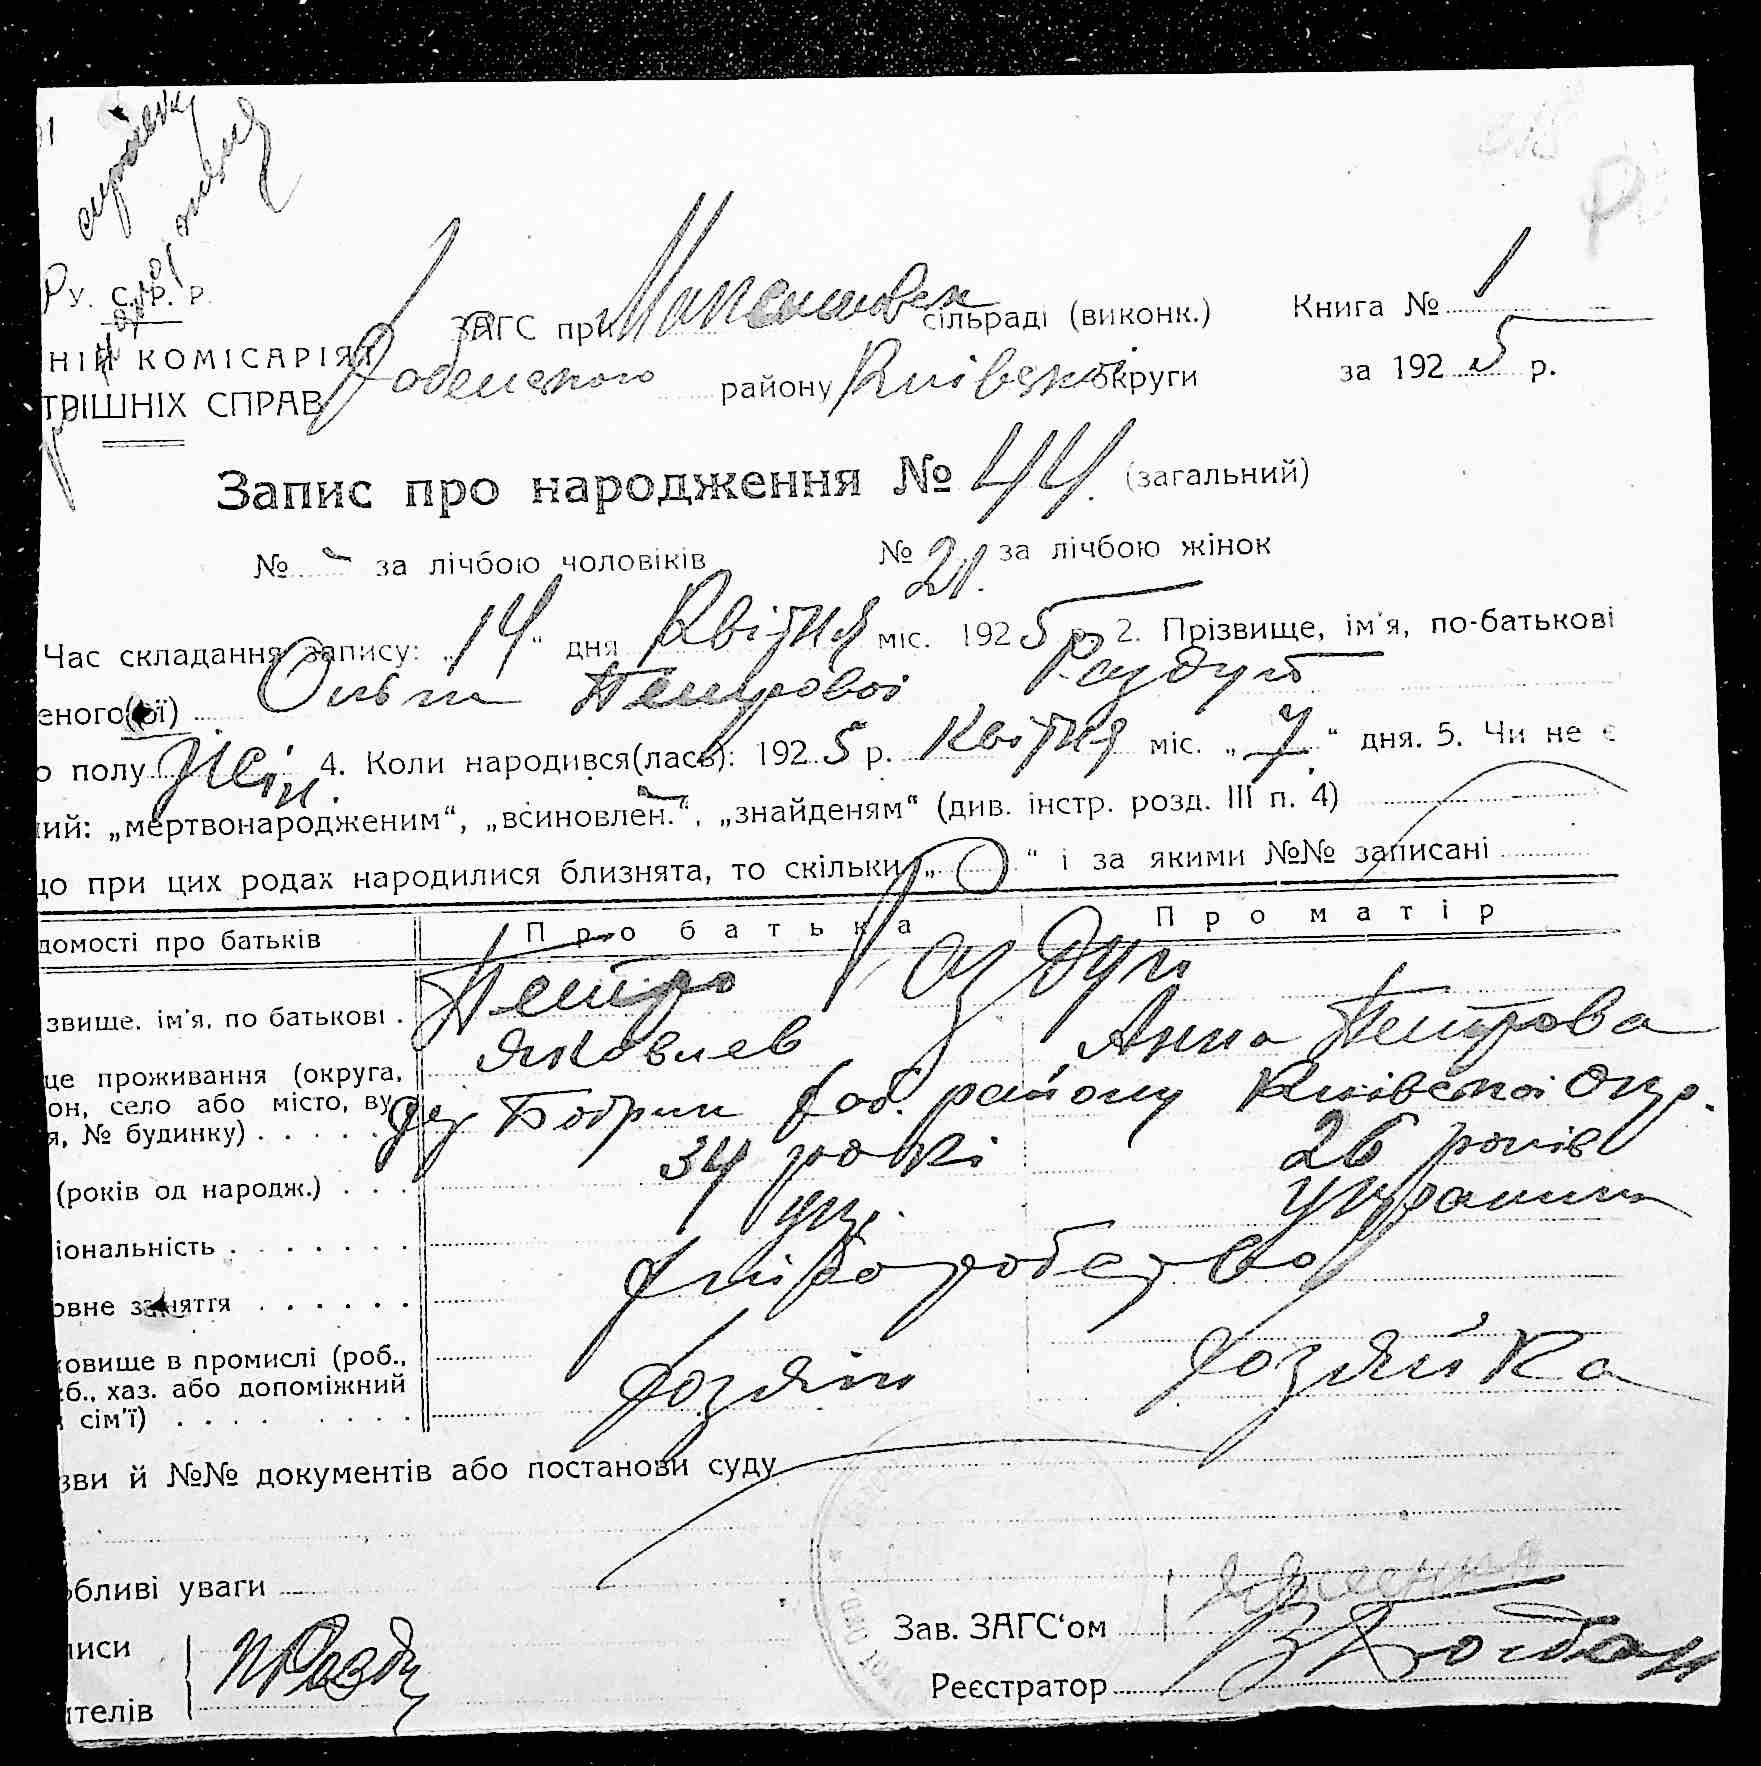 У. С. Р. Р.
ЗАГС при сільраді (виконк.) Книга № 1
НІЙ КОМІСАРІЯТ
району Київської округи за 1925 р.
ТРІШНІХ СПРАВ
Запис про народження № 44. (загальний)
№ - за лічбою чоловіків № 21. за лічбою жінок
Час складання запису: „14“ дня Квітня міс. 1925 р. 2. Прізвище, ім'я, по-батькові
еного(ої) Ольги Петрової Раздуй
о полу жін. 4. Коли народився(лась): 1925 р. Квітня міс. „7.“ дня. 5. Чи не є
ий: „мертвонародженим“, „всиновлен.“, „знайденям“ (див. інстр. розд. III п. 4)
що при цих родах народилися близнята, то скільки „0“ і за якими №№ записані
домості про батьків Про батька Про матір
Петро Раздуй
звище, ім'я, по батькові . Яковлев Анна Петрова
це проживання (округа,
он, село або місто, ву
я, № будинку) . . . . . району Київської Окр.
(років од народж.) . . . 34 роки 26 років
іональність . . . . . . . укр.
овне заняття . . . . . . . хліборобство
ковище в промислі (роб.,
жб., хаз. або допоміжний Хозяин Хозяйка
сім'ї) . . . . . . . . .
зви й №№ документів або постанови суду
обливі уваги
Зав. ЗАГС'ом
писи
Реєстратор
ителів